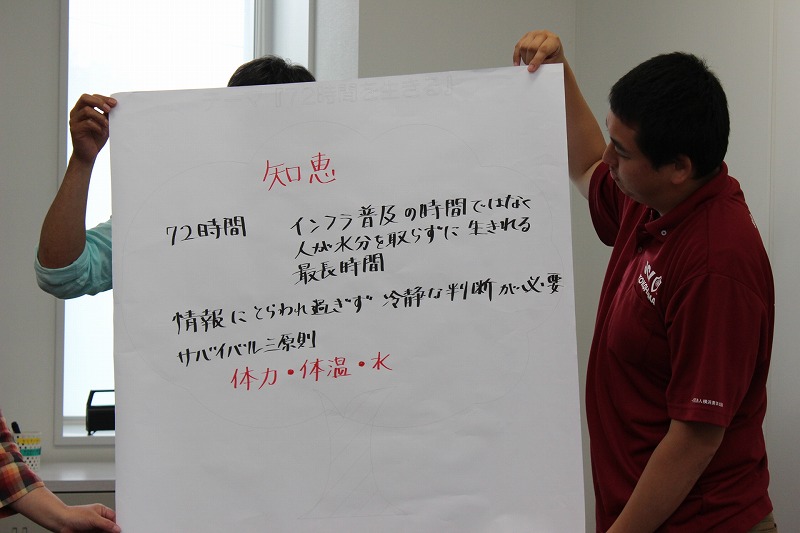 知恵
72時間 インフラ普及の時間ではなく
人が水分を取らずに生きれる
最長時間
情報にとらわれ過ぎず 冷静な判断が必要
サバイバル三原則
体力・体温・水